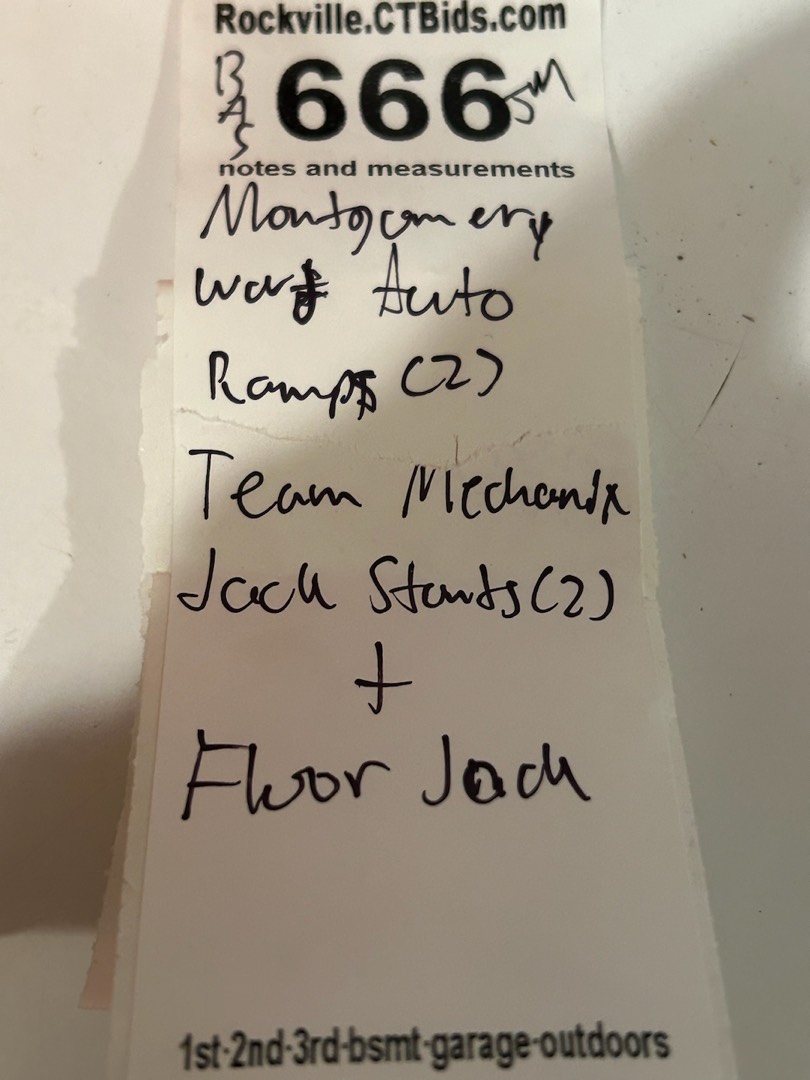 Rockville.CTBids.com
BAS 666 SM
notes and measurements
Montgomery
Ward Auto
Ramps (2)
Team Mechanix
Jack Stands (2)
+
Floor Jack
1st-2nd-3rd-bsmt-garage-outdoors